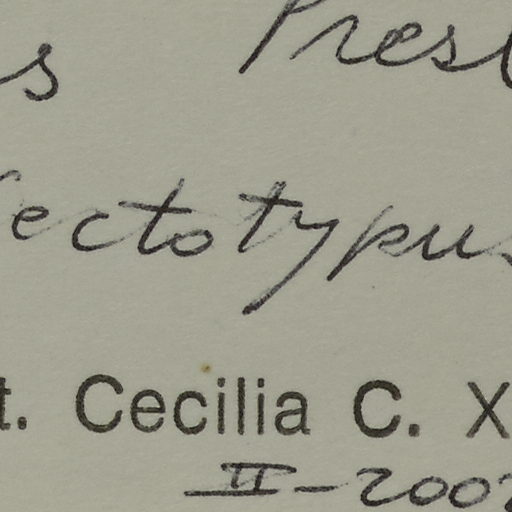 s Presl
Lectotypus
t. Cecilia C. X
II-2002